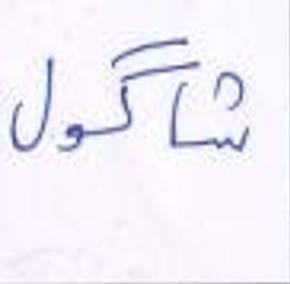 شاگول